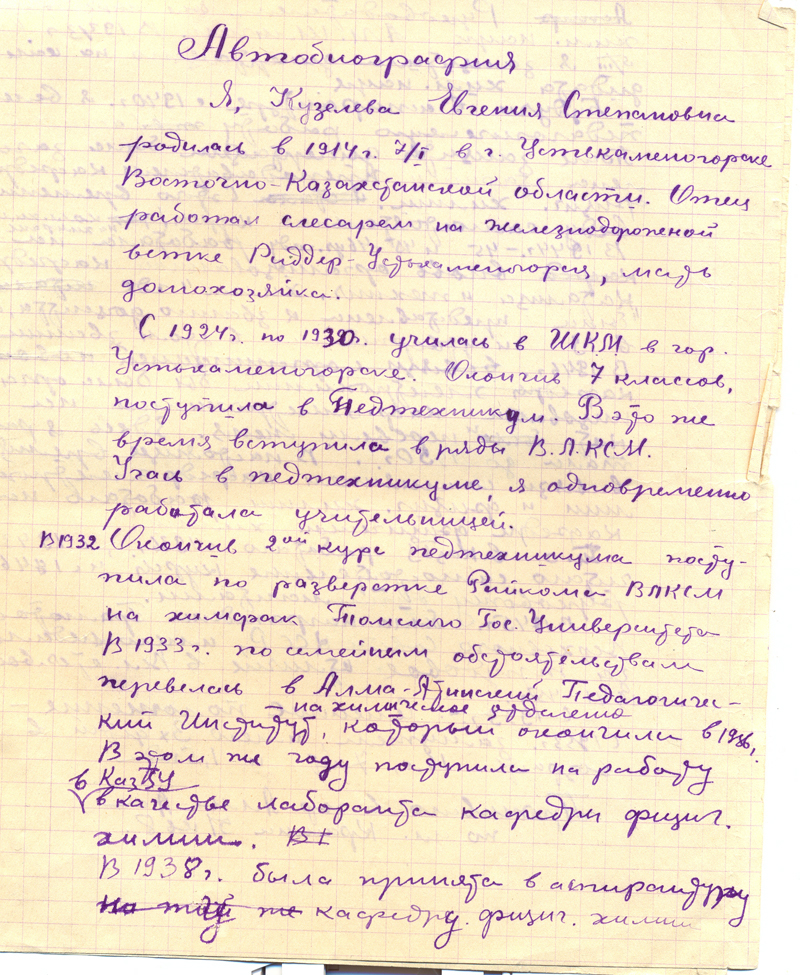 Автобиография
Я, Кузелева Евгения Степановна
родилась в 1914 г. 7/I в г. Устькаменогорске
Восточно-Казахстанской области. Отец
работал слесарем на железнодорожной
ветке Риддер-Устькаменогорск, мать
домохозяйка.
С 1924 г. по 1930 г. училась в ШКМ в гор.
Устькаменогорске. Окончив 7 классов,
поступила в Педтехникум. В это же
время вступила в ряды В.Л.КСМ.
Учась в педтехникуме, я одновременно
работала учительницей.
В 1932 Окончив 2ой курс педтехникума посту-
пила по разверстке Райкома ВЛКСМ
на химфак Томского Гос. Университета
В 1933 г. по семейным обстоятельствам
перевелась в Алма-Атинский Педагогичес-
на химическое отделение
кий Институт, который окончила в 1936 г.
В этом же году поступила на работу
в КазГУ
в качестве лаборанта кафедры физич.
химии. В 1
В 1938 г. была принята в аспирантуру
на той же кафедру физич. химии